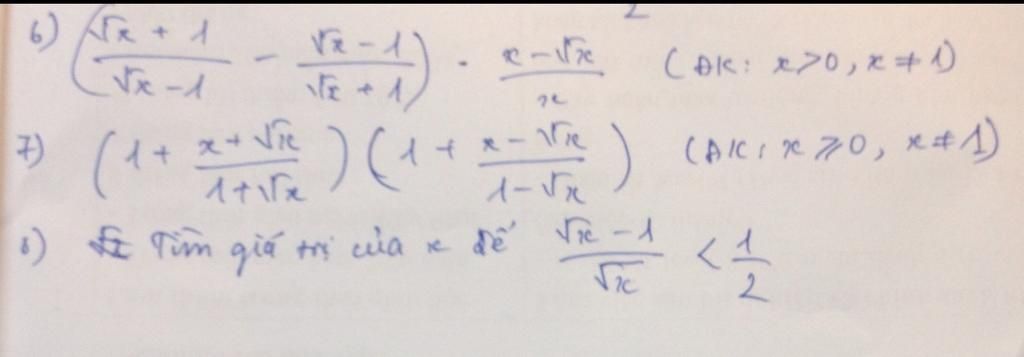 6) ((√x + 1)/(√x - 1) - (√x - 1)/(√x + 1)) · (x - √x)/x (ĐK: x > 0, x ≠ 1)
7) (1 + (x + √x)/(1 + √x)) (1 + (x - √x)/(1 - √x)) (ĐK: x ⩾ 0, x ≠ 1)
8) Tìm giá trị của x để (√x - 1)/√x < 1/2